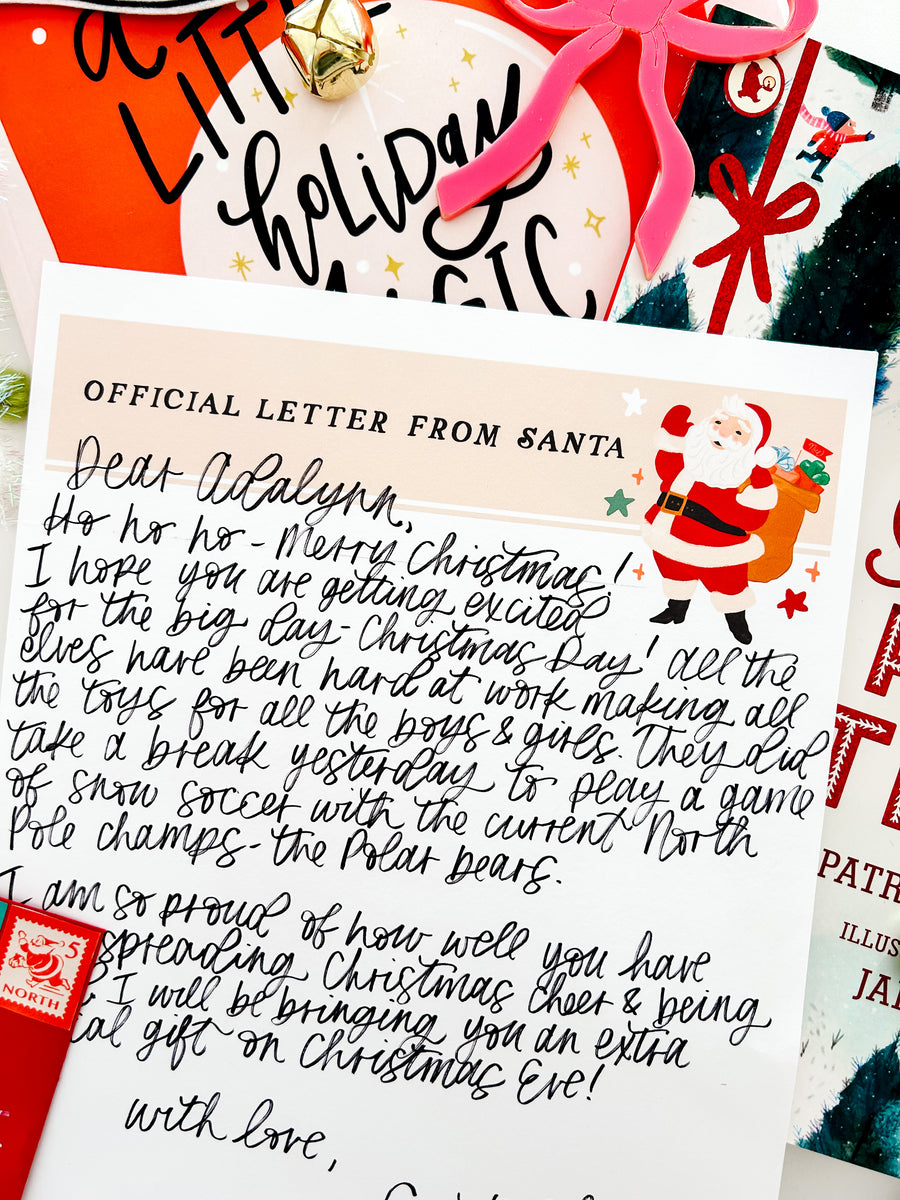 a
LITTLE
holiday
MAGIC
OFFICIAL LETTER FROM SANTA
Dear Adalynn,
Ho ho ho - Merry Christmas!
I hope you are getting excited
for the big day - Christmas Day! All the
elves have been hard at work making all
the toys for all the boys & girls. They did
take a break yesterday to play a game
of snow soccer with the current North
Pole champs - the Polar bears.
I am so proud of how well you have
spreading Christmas cheer & being
I will be bringing you an extra
ial gift on Christmas Eve!
with love,
5
NORTH
PATR
ILLUS
JA